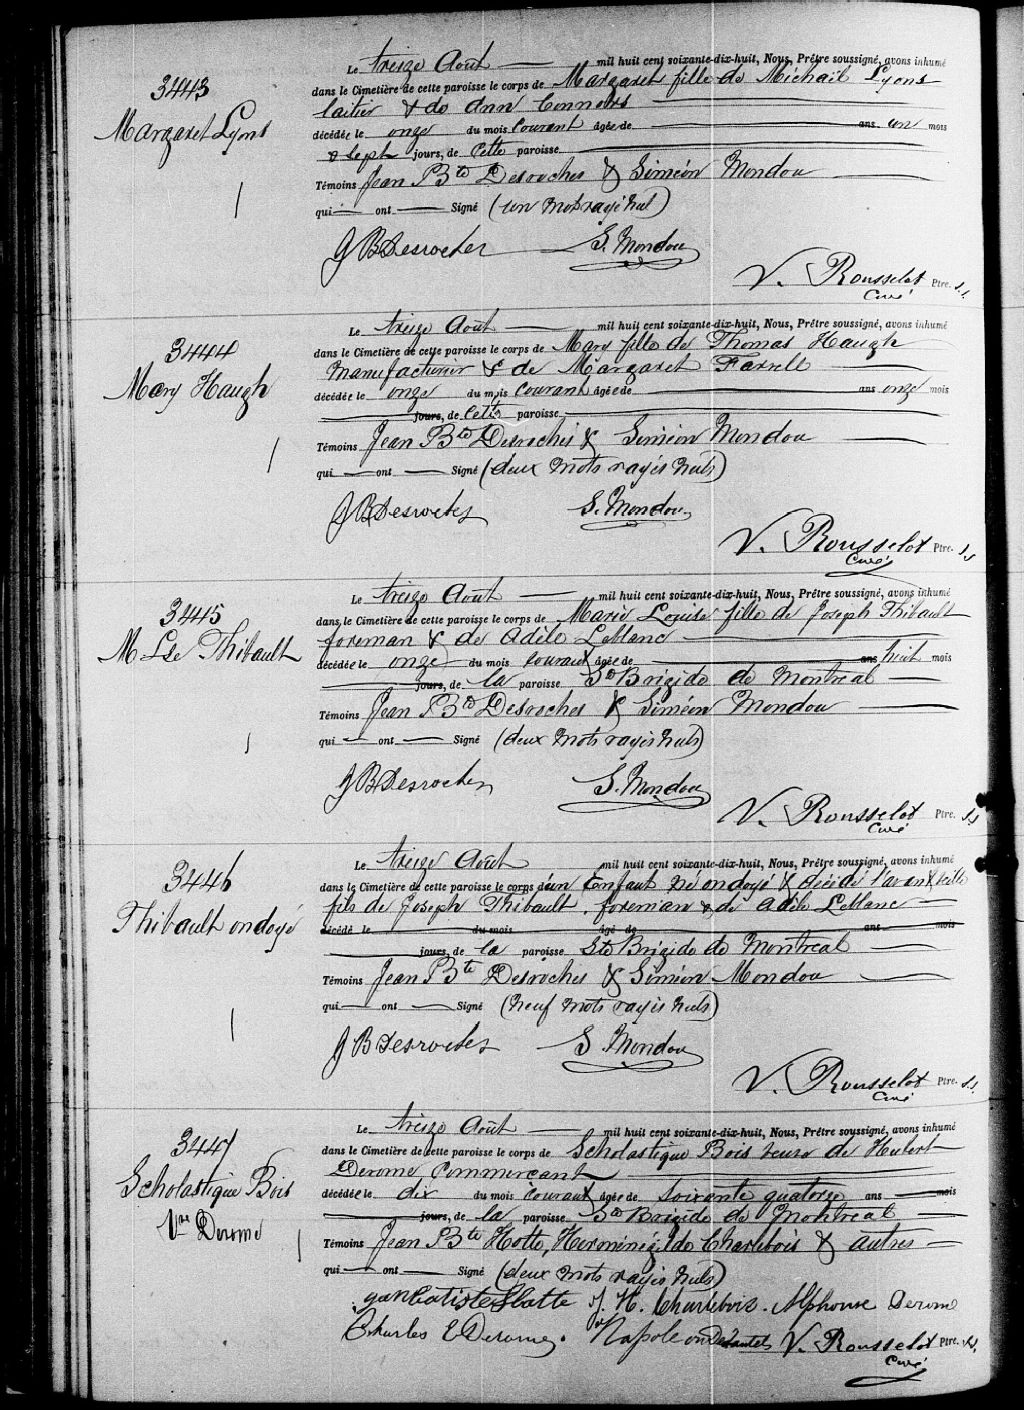 3443
Margaret Lyons
Le treize Août mil huit cent soixante-dix-huit, Nous, Prêtre soussigné, avons inhumé
dans le Cimetière de cette paroisse le corps de Margaret fille de Michaël Lyons
laitier & de Ann Connors
décédée le onze du mois courant âgée de ans un mois
& sept jours, de cette paroisse
Témoins Jean Bte Desroches & Siméon Mondou
qui ont Signé (un mot rayé nul)
J B Desroches S. Mondou
V. Rousselot Ptre. S.S.
Curé
3444
Mary Haugh
Le treize Août mil huit cent soixante-dix-huit, Nous, Prêtre soussigné, avons inhumé
dans le Cimetière de cette paroisse le corps de Mary fille de Thomas Haugh
manufacturier & de Margaret Farrell
décédée le onze du mois courant âgée de ans onze mois
jours, de cette paroisse
Témoins Jean Bte Desroches & Siméon Mondou
qui ont Signé (deux mots rayés nuls)
J B Desroches S. Mondou
V. Rousselot Ptre. S.S.
Curé
3445
M Lse Thibault
Le treize Août mil huit cent soixante-dix-huit, Nous, Prêtre soussigné, avons inhumé
dans le Cimetière de cette paroisse le corps de Marie Louise fille de Joseph Thibault
foreman & de Adèle Leblanc
décédée le onze du mois courant âgée de ans huit mois
jours, de la paroisse Ste Brigide de Montréal
Témoins Jean Bte Desroches & Siméon Mondou
qui ont Signé (deux mots rayés nuls)
J B Desroches S. Mondou
V. Rousselot Ptre. S.S.
Curé
3446
Thibault ondoyé
Le treize Août mil huit cent soixante-dix-huit, Nous, Prêtre soussigné, avons inhumé
dans le Cimetière de cette paroisse le corps d'un Enfant né ondoyé & décédé l'avant veille
fils de Joseph Thibault foreman & de Adèle Leblanc
décédé le du mois âgé de ans mois
jours, de la paroisse Ste Brigide de Montréal
Témoins Jean Bte Desroches & Siméon Mondou
qui ont Signé (neuf mots rayés nuls)
J B Desroches S. Mondou
V. Rousselot Ptre. S.S.
Curé
3447
Scholastique Bois
Vve Derome
Le treize Août mil huit cent soixante-dix-huit, Nous, Prêtre soussigné, avons inhumé
dans le Cimetière de cette paroisse le corps de Scholastique Bois veuve de Hubert
Derome Commerçant
décédée le dix du mois courant âgée de soixante quatorze ans mois
jours, de la paroisse Ste Brigide de Montréal
Témoins Jean Bte Hotte, Herménégilde Charlebois & autres
qui ont Signé (deux mots rayés nuls)
J. H. Charlebois. Alphonse Derome
Charles E Derome. Napoleon V. Rousselot Ptre. S.S.
Curé